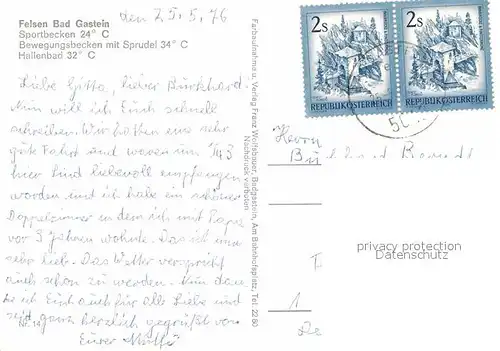 Felsen Bad Gastein
Sportbecken 24° C
Bewegungsbecken mit Sprudel 34° C
Hallenbad 32° C
den 25.5.76
Liebe Gitta, lieber Burkhard.
Nun will ich Euch schnell
schreiben. Wir hatten eine sehr
gute Fahrt und waren um 1/4 3
hier sind liebevoll empfangen
worden und ich habe ein schönes
Doppelzimmer in dem ich mit Papa
vor 3 Jahren wohnte. Das ist ein
sehr lieb. Das Wetter verspricht
auch schön zu werden. Nun danke
ich Euch auch für alle Liebe und
seid ganz herzlich gegrüßt von
Eurer Mutti
Nr. 14
Farbaufnahme u. Verlag Franz Wolfsbauer, Badgastein, Am Bahnhofsplatz, Tel. 22 80
Nachdruck verboten
2s
REPUBLIK ÖSTERREICH
2s
REPUBLIK ÖSTERREICH
Herrn
privacy protection
Datenschutz
1